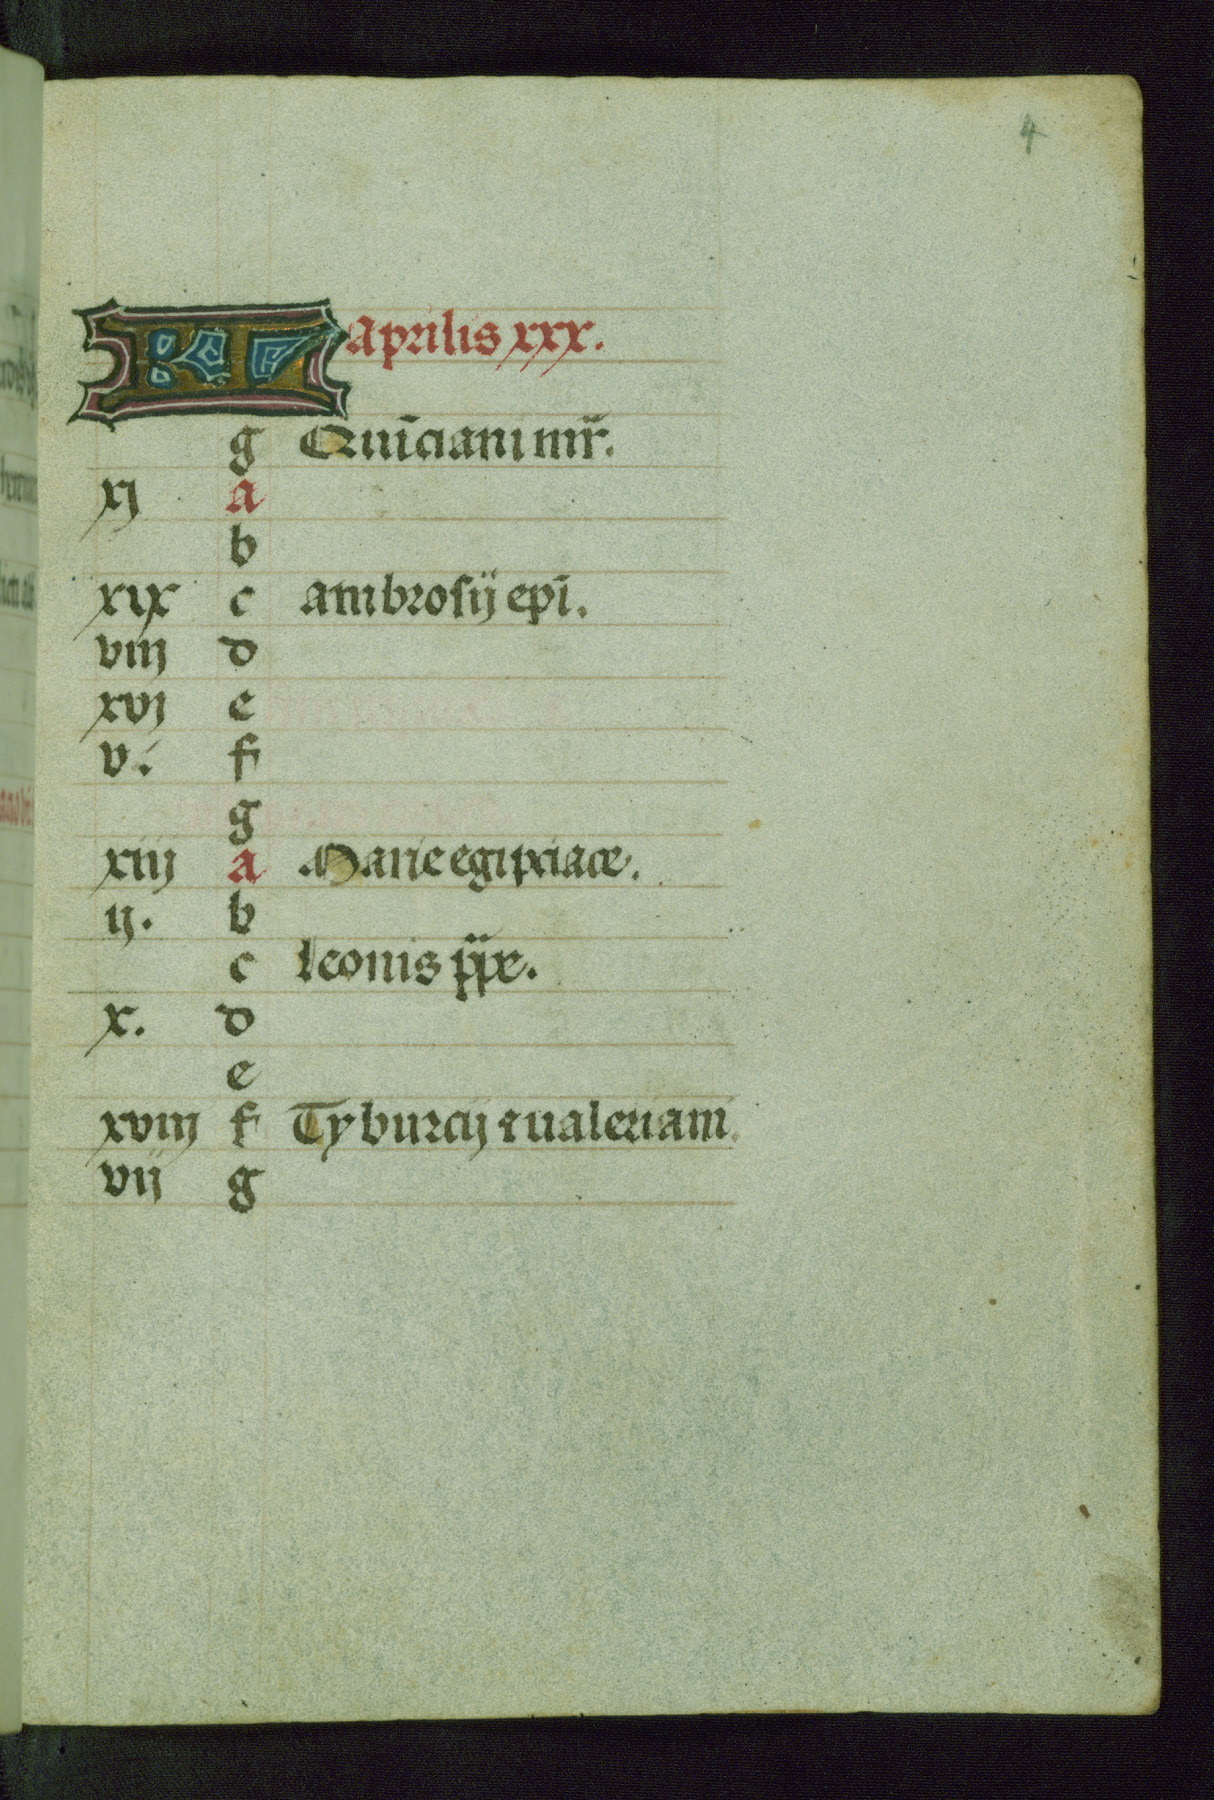 4
KL Aprilis xxx.
g Quīciani mr̄.
xj a
b
xix c ambrosij ep̄i.
viij d
xvj e
v. f
g
xiij a Marie egipciace.
ij. b
c leonis pp̄e.
x. d
e
xviij f Tyburcij ⁊ ualeriani.
vij g